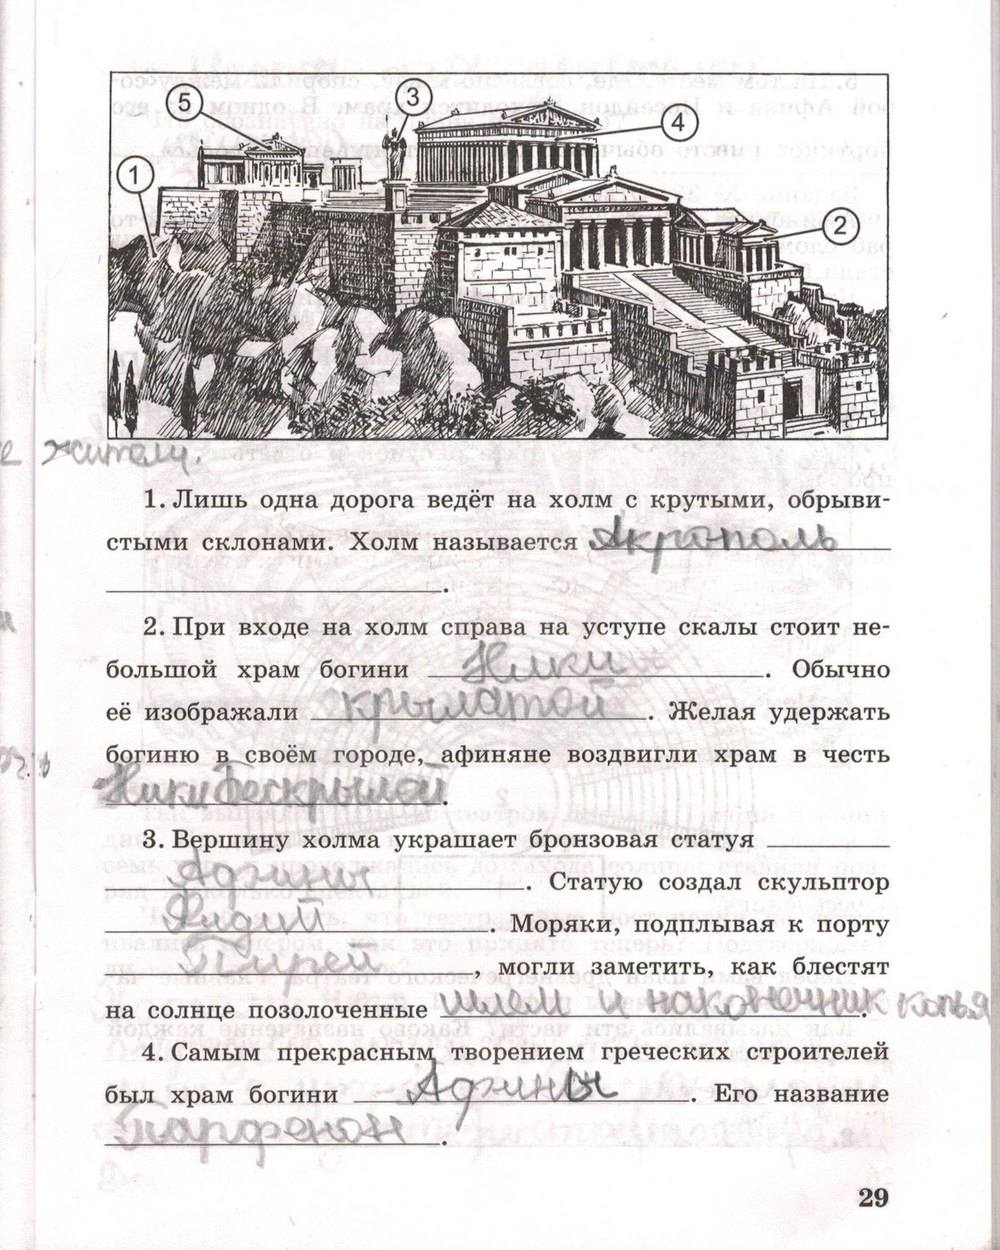 5
3
4
1
2
жители.
1. Лишь одна дорога ведёт на холм с крутыми, обрыви-
стыми склонами. Холм называется Акрополь
.
2. При входе на холм справа на уступе скалы стоит не-
большой храм богини Ники. Обычно
её изображали крылатой. Желая удержать
богиню в своём городе, афиняне воздвигли храм в честь
Ники Бескрылой.
3. Вершину холма украшает бронзовая статуя
Афины. Статую создал скульптор
Фидий. Моряки, подплывая к порту
Пирей, могли заметить, как блестят
на солнце позолоченные шлем и наконечник копья.
4. Самым прекрасным творением греческих строителей
был храм богини Афины. Его название
Парфенон.
29